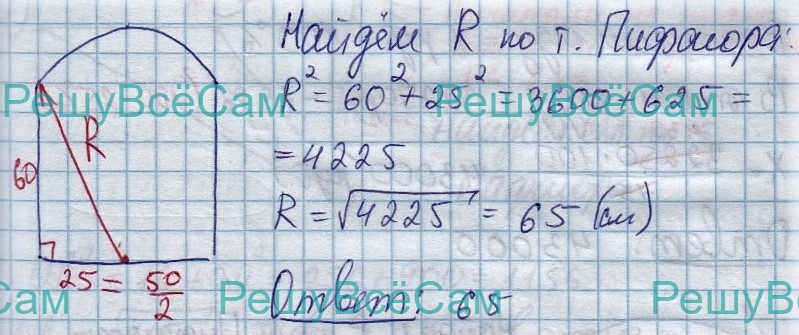 Найдём R по т. Пифагора:
R² = 60² + 25² = 3600 + 625 =
= 4225
R = √4225 = 65 (см)
Ответ: 65
R
60
25 = 50/2
РешуВсёСам РешуВсёСам
Сам РешуВсёСам РешуВсё